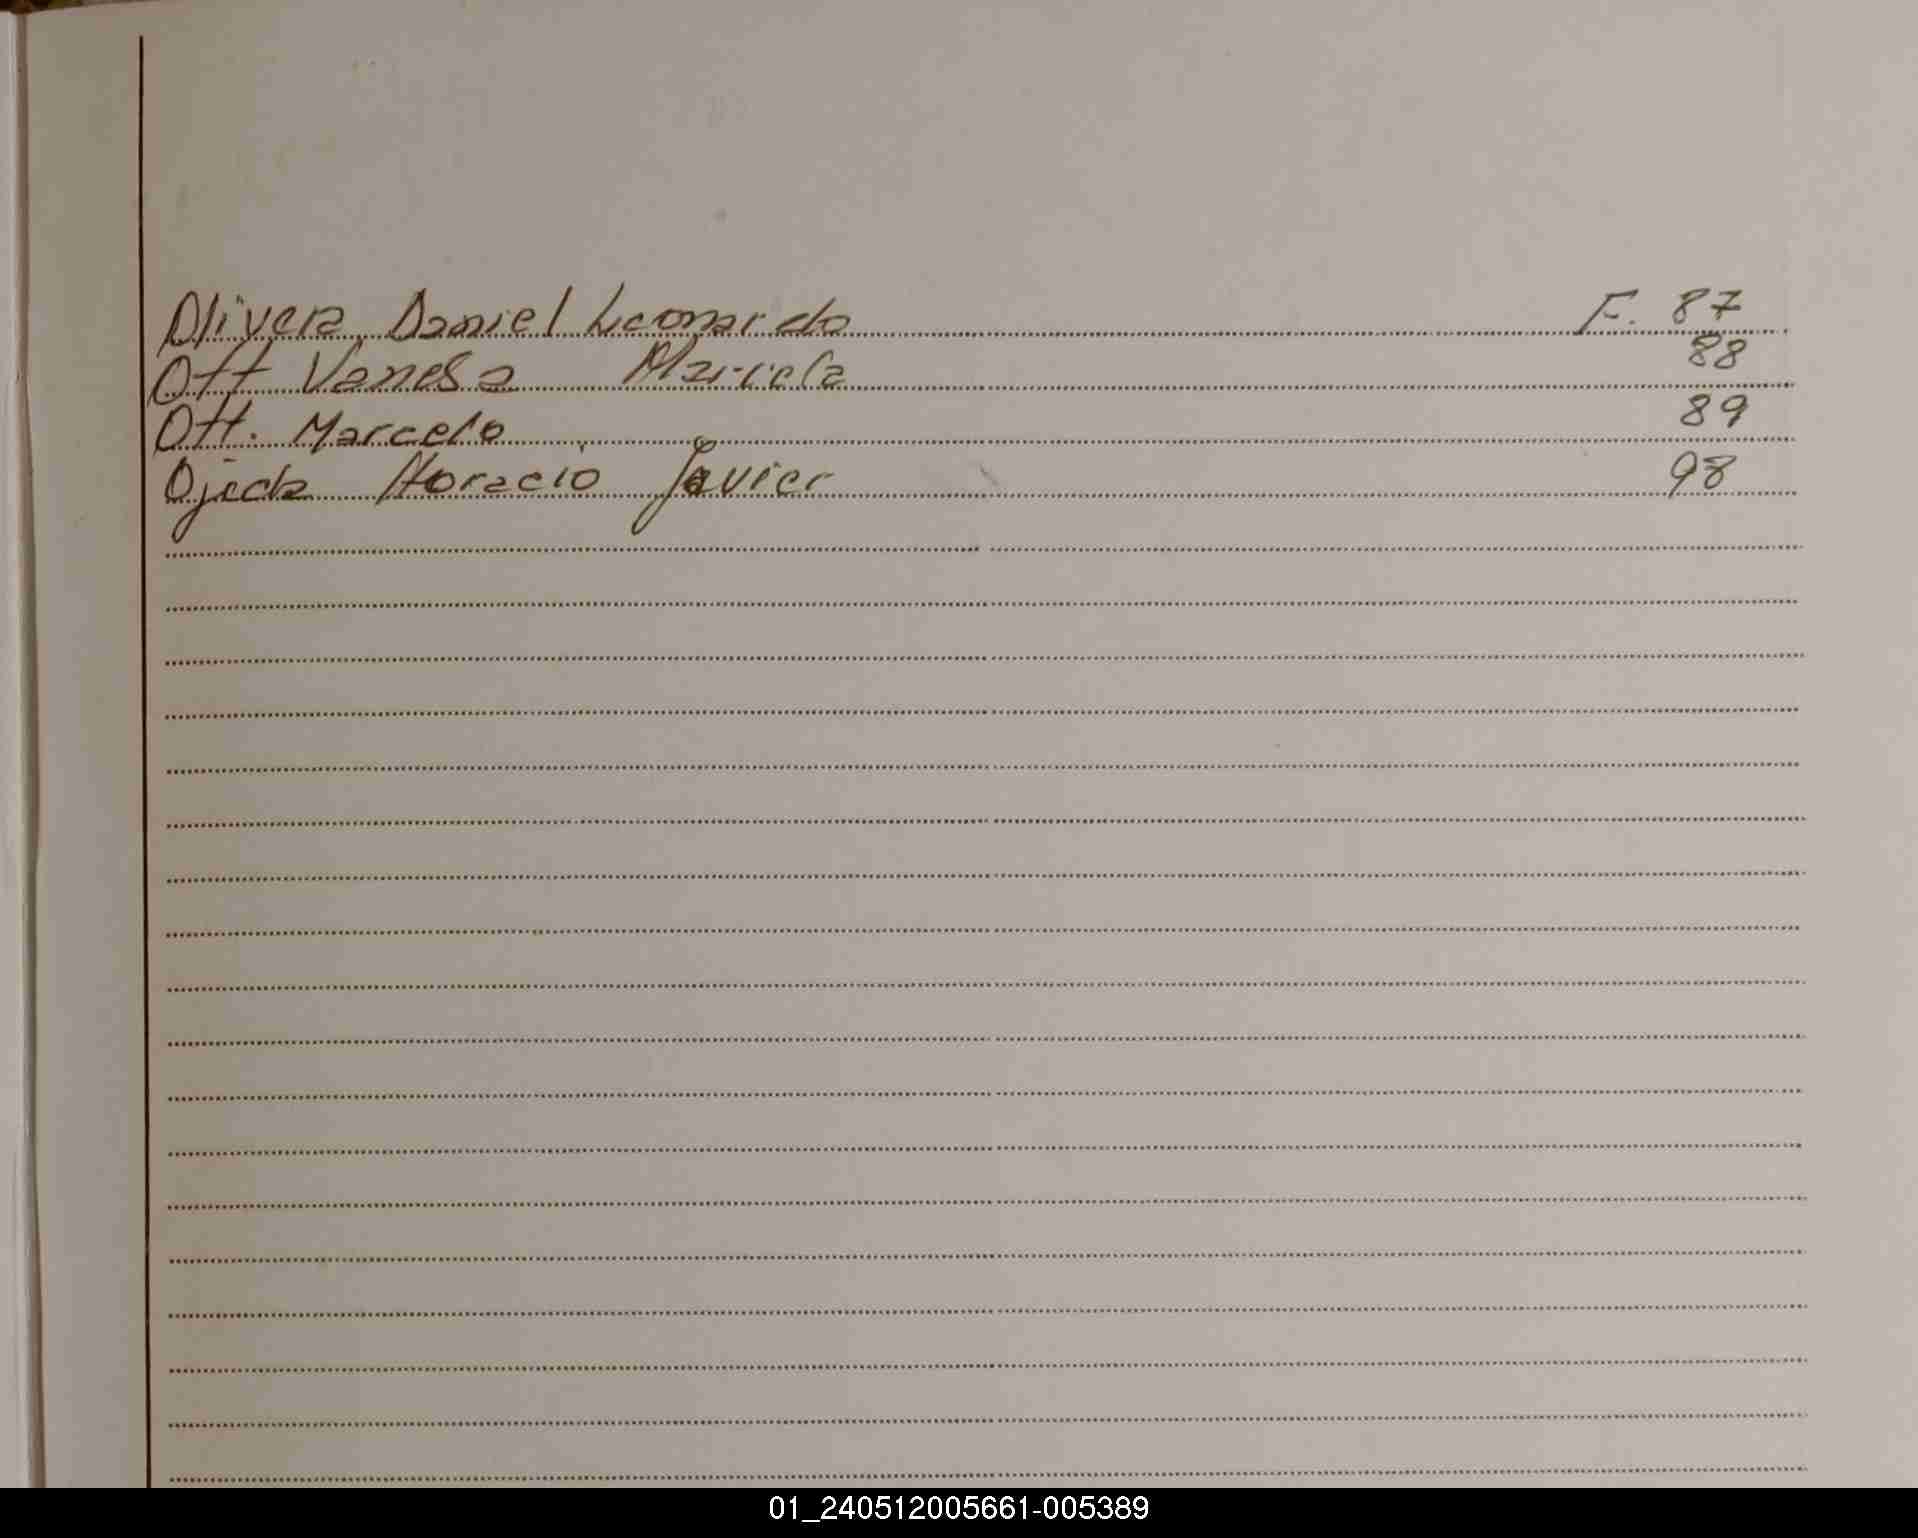 Olivera Daniel Leonardo F. 87
Ott Vanesa Mariela 88
Ott. Marcelo 89
Ojeda Horacio Javier 98
01_240512005661-005389